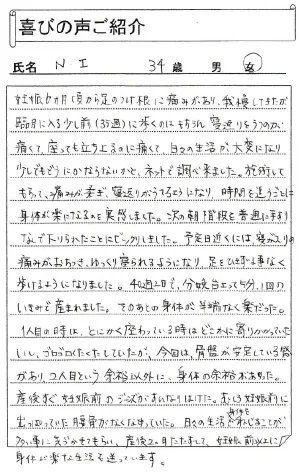 喜びの声ご紹介
氏名 N I 34歳 男 女
妊娠6ヵ月頃から足のつけ根に痛みがあり、我慢してきたが
臨月に入る少し前(35週)に歩くのはもちろん寝返りをうつのが
痛くて、座っても立ち上るのに痛くて、日々の生活が大変になり
少しでもどうにかならないかと、ネットで調べ来ました。施術して
もらって、痛みが楽ぎ、寝返りがうてるようになり、時間を追うごとに
身体が楽になるのを実感しました。次の朝階段を普通に手すり
なしで下りられたことにビックリしました。予定日近くには寝る
痛みがおちつき、ゆっくり寝られるようになり、足をひきずる事なく
歩けるようになりました。40週2日で、分娩台立って4分、1回の
いきみで産まれました。そのあとの身体が半端なく楽だった。
1人目の時は、とにかく座っている時はどこかに寄りかかっていた
いし、ゴロゴロくたくたしていたが、今回は、骨盤が安定している感
があり、2人目という余裕以外に、身体の余裕があった。
産後すぐ妊娠前のジーズがすんなりはけた。むしろ妊娠前に
出っぱっていた腰骨がなくなっていた。日々の生活
事に気づかせてもらい、産後2ヵ月たたずして、妊娠前以上に
身体が楽な生活を送っています。